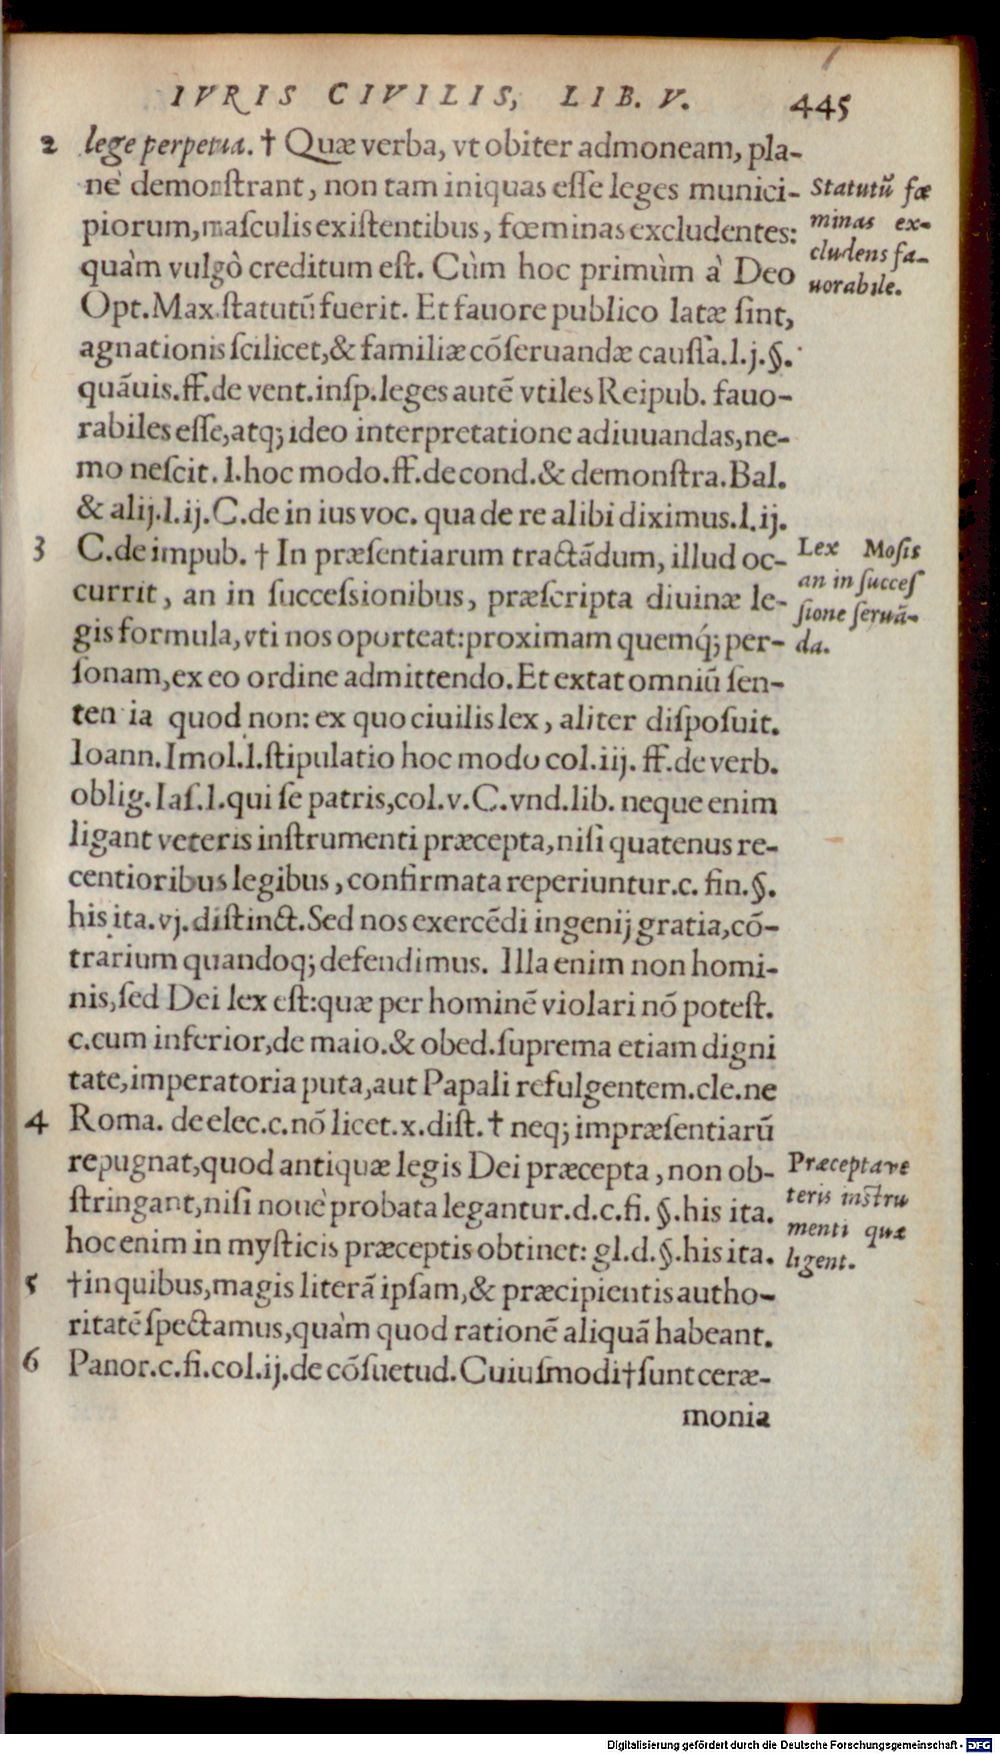 IVRIS CIVILIS, LIB. V. 445
2 lege perpetua. † Quæ verba, vt obiter admoneam, pla-
nè demonſtrant, non tam iniquas eſſe leges munici-
piorum, maſculis exiſtentibus, fœminas excludentes:
quàm vulgò creditum eſt. Cùm hoc primùm à Deo
Opt. Max. ſtatutũ fuerit. Et fauore publico latæ ſint,
agnationis ſcilicet, & familiæ cõſeruandæ cauſſa. l. j. §.
quãuis. ff. de vent. inſp. leges autẽ vtiles Reipub. fauo-
rabiles eſſe, atq; ideo interpretatione adiuuandas, ne-
mo neſcit. l. hoc modo. ff. de cond. & demonſtra. Bal.
& alij. l. ij. C. de in ius voc. qua de re alibi diximus. l. ij.
3 C. de impub. † In præſentiarum tractãdum, illud oc-
currit, an in ſucceſsionibus, præſcripta diuinæ le-
gis formula, vti nos oporteat: proximam quemq́; per-
ſonam, ex eo ordine admittendo. Et extat omniũ ſen-
ten ia quod non: ex quo ciuilis lex, aliter diſpoſuit.
Ioann. Imol. l. ſtipulatio hoc modo col. iij. ff. de verb.
oblig. Iaſ. l. qui ſe patris, col. v. C. vnd. lib. neque enim
ligant veteris inſtrumenti præcepta, niſi quatenus re-
centioribus legibus, confirmata reperiuntur. c. fin. §.
his ita. vj. diſtinct. Sed nos exercẽdi ingenij gratia, cõ-
trarium quandoq; defendimus. Illa enim non homi-
nis, ſed Dei lex eſt: quæ per hominẽ violari nõ poteſt.
c. cum inferior, de maio. & obed. ſuprema etiam digni
tate, imperatoria puta, aut Papali refulgentem. cle. ne
4 Roma. de elec. c. nõ licet. x. diſt. † neq; impræſentiarũ
repugnat, quod antiquæ legis Dei præcepta, non ob-
ſtringant, niſi nouè probata legantur. d. c. fi. §. his ita.
hoc enim in myſticis præceptis obtinet: gl. d. §. his ita.
5 † in quibus, magis literã ipſam, & præcipientis autho-
ritatẽ ſpectamus, quàm quod rationẽ aliquã habeant.
6 Panor. c. fi. col. ij. de cõſuetud. Cuiuſmodi † ſunt ceræ-
monia
Statutũ fœ
minas ex-
cludens fa-
uorabile.
Lex Moſis
an in ſucceſ
ſione ſeruã-
da.
Præcepta ve
teris inſtru
menti quæ
ligent.
Digitalisierung gefördert durch die Deutsche Forschungsgemeinschaft - DFG